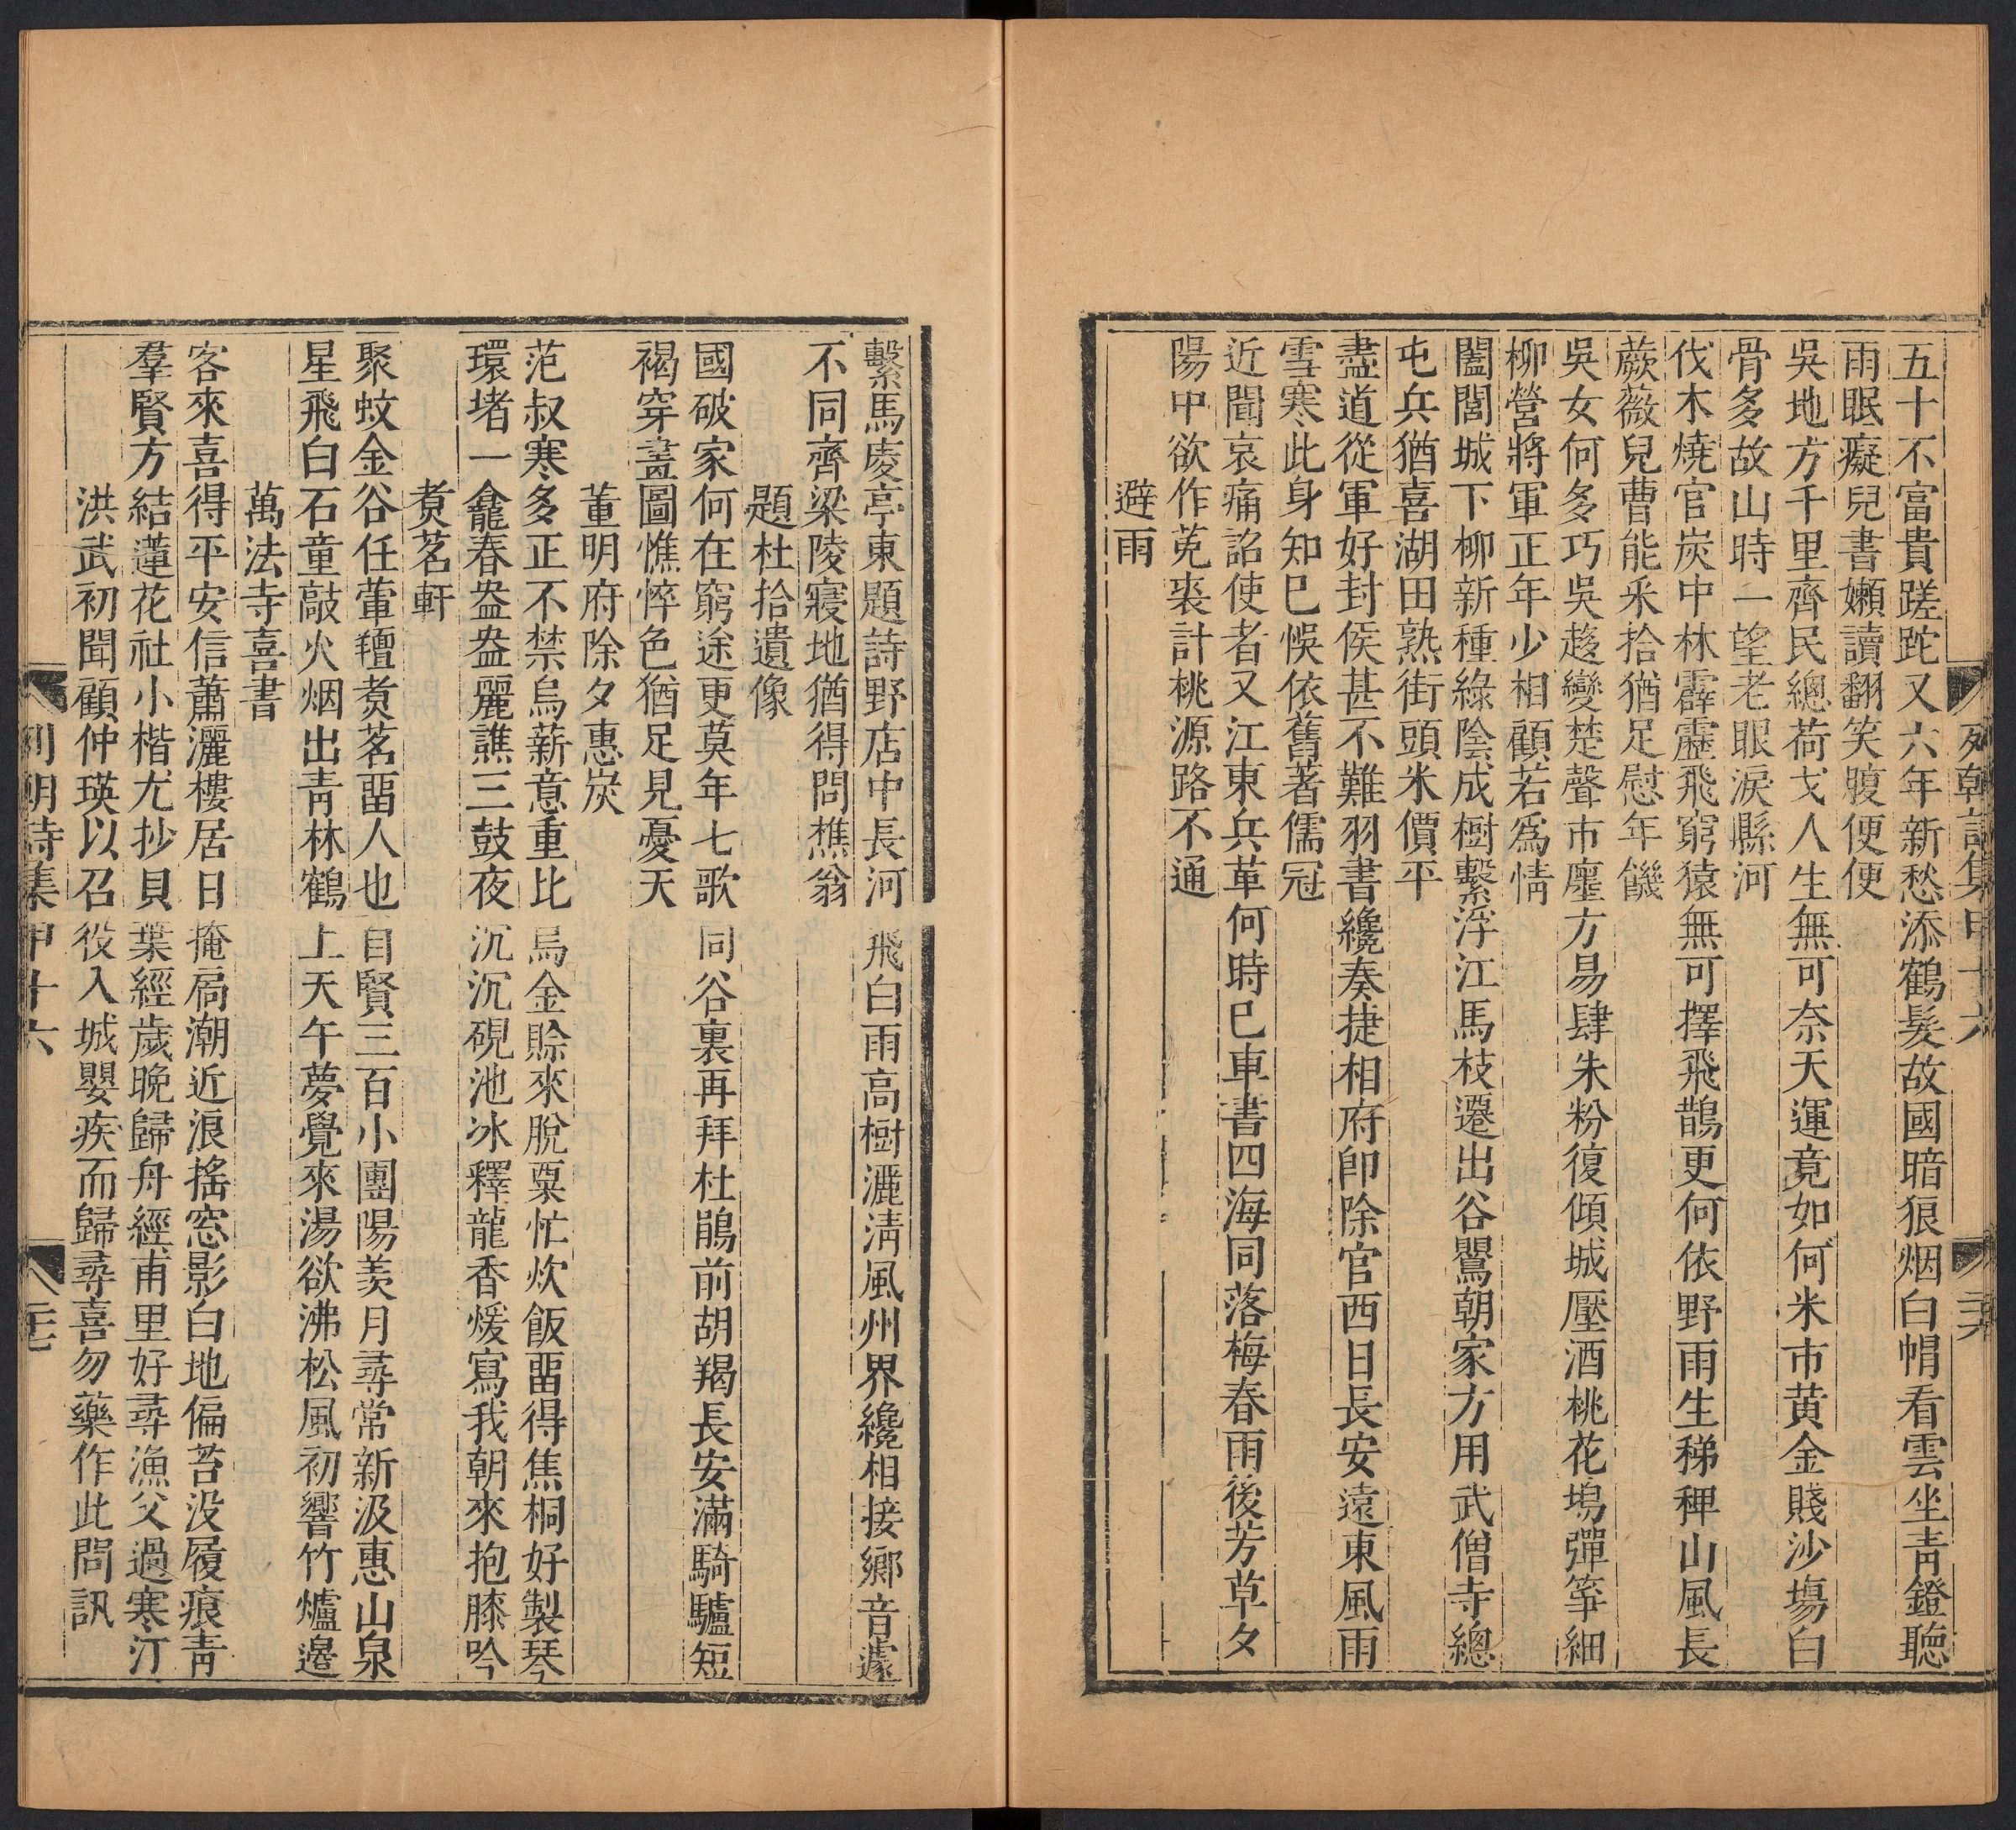 列朝詩集甲十六
二十六
五十不富貴蹉跎又六年新愁添鶴髮故國暗狼烟白帽看雲坐靑鐙聽
雨眠癡兒書嬾讀翻笑腹便便
吳地方千里齊民總荷戈人生無可奈天運竟如何米市黄金賤沙塲白
骨多故山時一望老眼淚縣河
伐木燒官炭中林霹靂飛窮猿無可擇飛鵲更何依野雨生稊稗山風長
蕨薇兒曹能釆拾猶足慰年饑
吳女何多巧吳趍變楚聲市廛方易肆朱粉復傾城壓酒桃花塢彈筝細
柳營將軍正年少相顧若爲情
闔閭城下柳新種綠陰成樹繫浮江馬枝遷出谷鸎朝家方用武僧寺總
屯兵猶喜湖田熟街頭米價平
盡道從軍好封侯甚不難羽書纔奏捷相府卽除官西日長安遠東風雨
雪寒此身知巳悞依舊著儒冠
近聞哀痛詔使者又江東兵革何時巳車書四海同落梅春雨後芳草夕
陽中欲作菟裘計桃源路不通
避雨
繫馬庱亭東題詩野店中長河飛白雨高樹灑淸風州界纔相接鄉音遽
不同齊梁陵寢地猶得問樵翁
題杜拾遺像
國破家何在窮途更莫年七歌同谷裏再拜杜鵑前胡羯長安滿騎驢短
褐穿畫圖憔悴色猶足見憂天
董明府除夕惠炭
范叔寒多正不禁烏薪意重比烏金賒來脫粟忙炊飯畱得焦桐好製琴
環堵一龕春盎盎麗譙三鼓夜沉沉硯池冰釋龍香煖寫我朝來抱膝吟
煑茗軒
聚蚊金谷任葷羶煑茗畱人也自賢三百小團陽羡月尋常新汲惠山泉
星飛白石童敲火烟出靑林鶴上天午夢覺來湯欲沸松風初響竹爐邉
萬法寺喜書
客來喜得平安信蕭灑樓居日掩扃潮近浪搖窓影白地偏苔没履痕靑
羣賢方結蓮花社小楷尤抄貝葉經歲晚歸舟經甫里好尋漁父過寒汀
洪武初聞顧仲瑛以召役入城嬰疾而歸尋喜勿藥作此問訊
列朝詩集甲十六
二十七